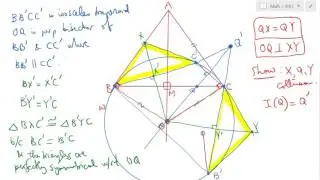 BB'CC' is isosceles trapezoid
OQ is perp bisector of
BB' & CC' where
BB' ∥ CC'
BX' = X'C'
BY' = Y'C
ΔBXC' ≅ ΔB'YC
b/c BC' = B'C
& the triangles are
perfectly symmetrical w.r.t OQ
A
X
Q'
B
M
C
Y
Y'
B'
QX = QY
OQ ⊥ XY
Show: X, Q, Y
collinear
I(Q) = Q'